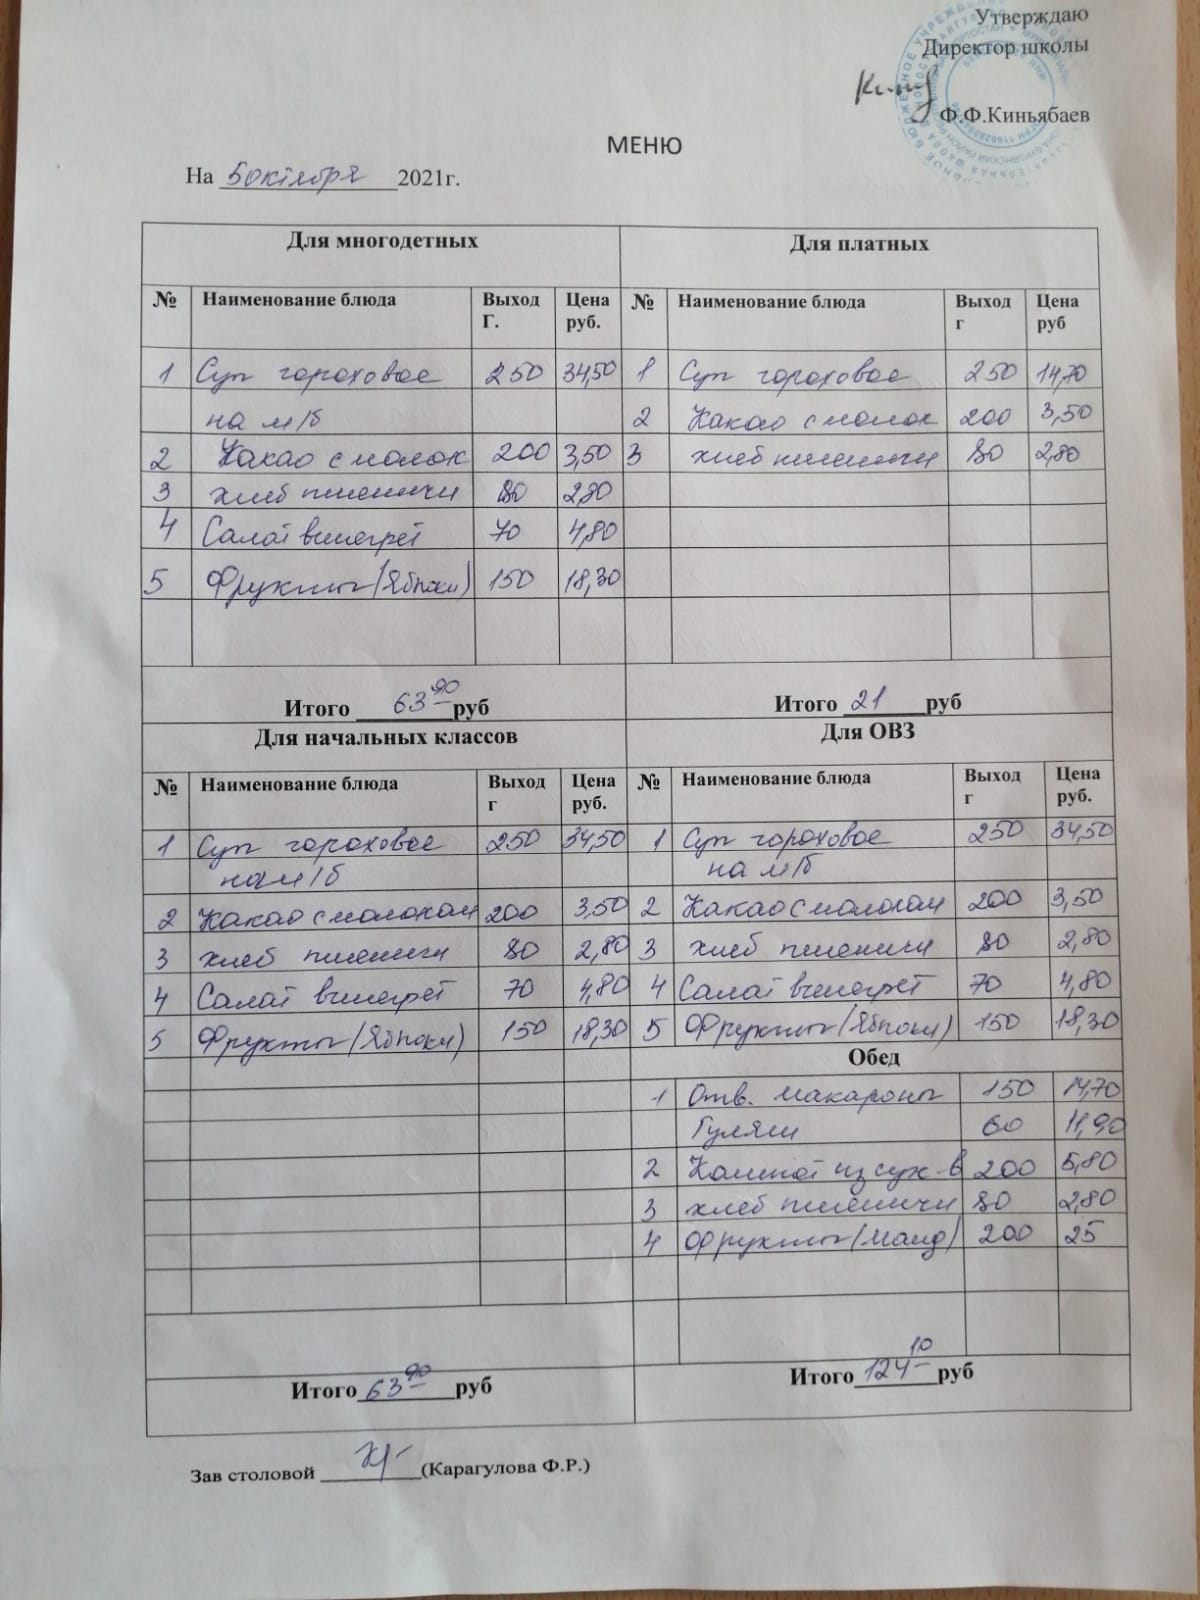 Утверждаю
Директор школы
Ф.Ф.Киньябаев
МЕНЮ
На 5 октября 2021г.
Для многодетных
№ Наименование блюда Выход Г. Цена руб.
1 Суп гороховое 250 34,50
на м/б
2 Какао с молок 200 3,50
3 хлеб пшеничн 80 2,80
4 Салат винегрет 70 4,80
5 Фрукты (Яблоки) 150 18,30
Итого 63 90 руб
Для платных
№ Наименование блюда Выход г Цена руб
1 Суп гороховое 250 14,70
2 Какао с молок 200 3,50
3 хлеб пшеничн 80 2,80
Итого 21 руб
Для начальных классов
№ Наименование блюда Выход г Цена руб.
1 Суп гороховое 250 34,50
на м/б
2 Какао с молоком 200 3,50
3 хлеб пшеничн 80 2,80
4 Салат винегрет 70 4,80
5 Фрукты (Яблоки) 150 18,30
Итого 63 90 руб
Для ОВЗ
№ Наименование блюда Выход г Цена руб.
1 Суп гороховое 250 34,50
на м/б
2 Какао с молоком 200 3,50
3 хлеб пшеничн 80 2,80
4 Салат винегрет 70 4,80
5 Фрукты (Яблоки) 150 18,30
Обед
1 Отв. макароны 150 14,70
Гуляш 60 11,90
2 Компот из сух-в 200 5,80
3 хлеб пшеничн 80 2,80
4 Фрукты (манд) 200 25
Итого 124 10 руб
Зав столовой (Карагулова Ф.Р.)